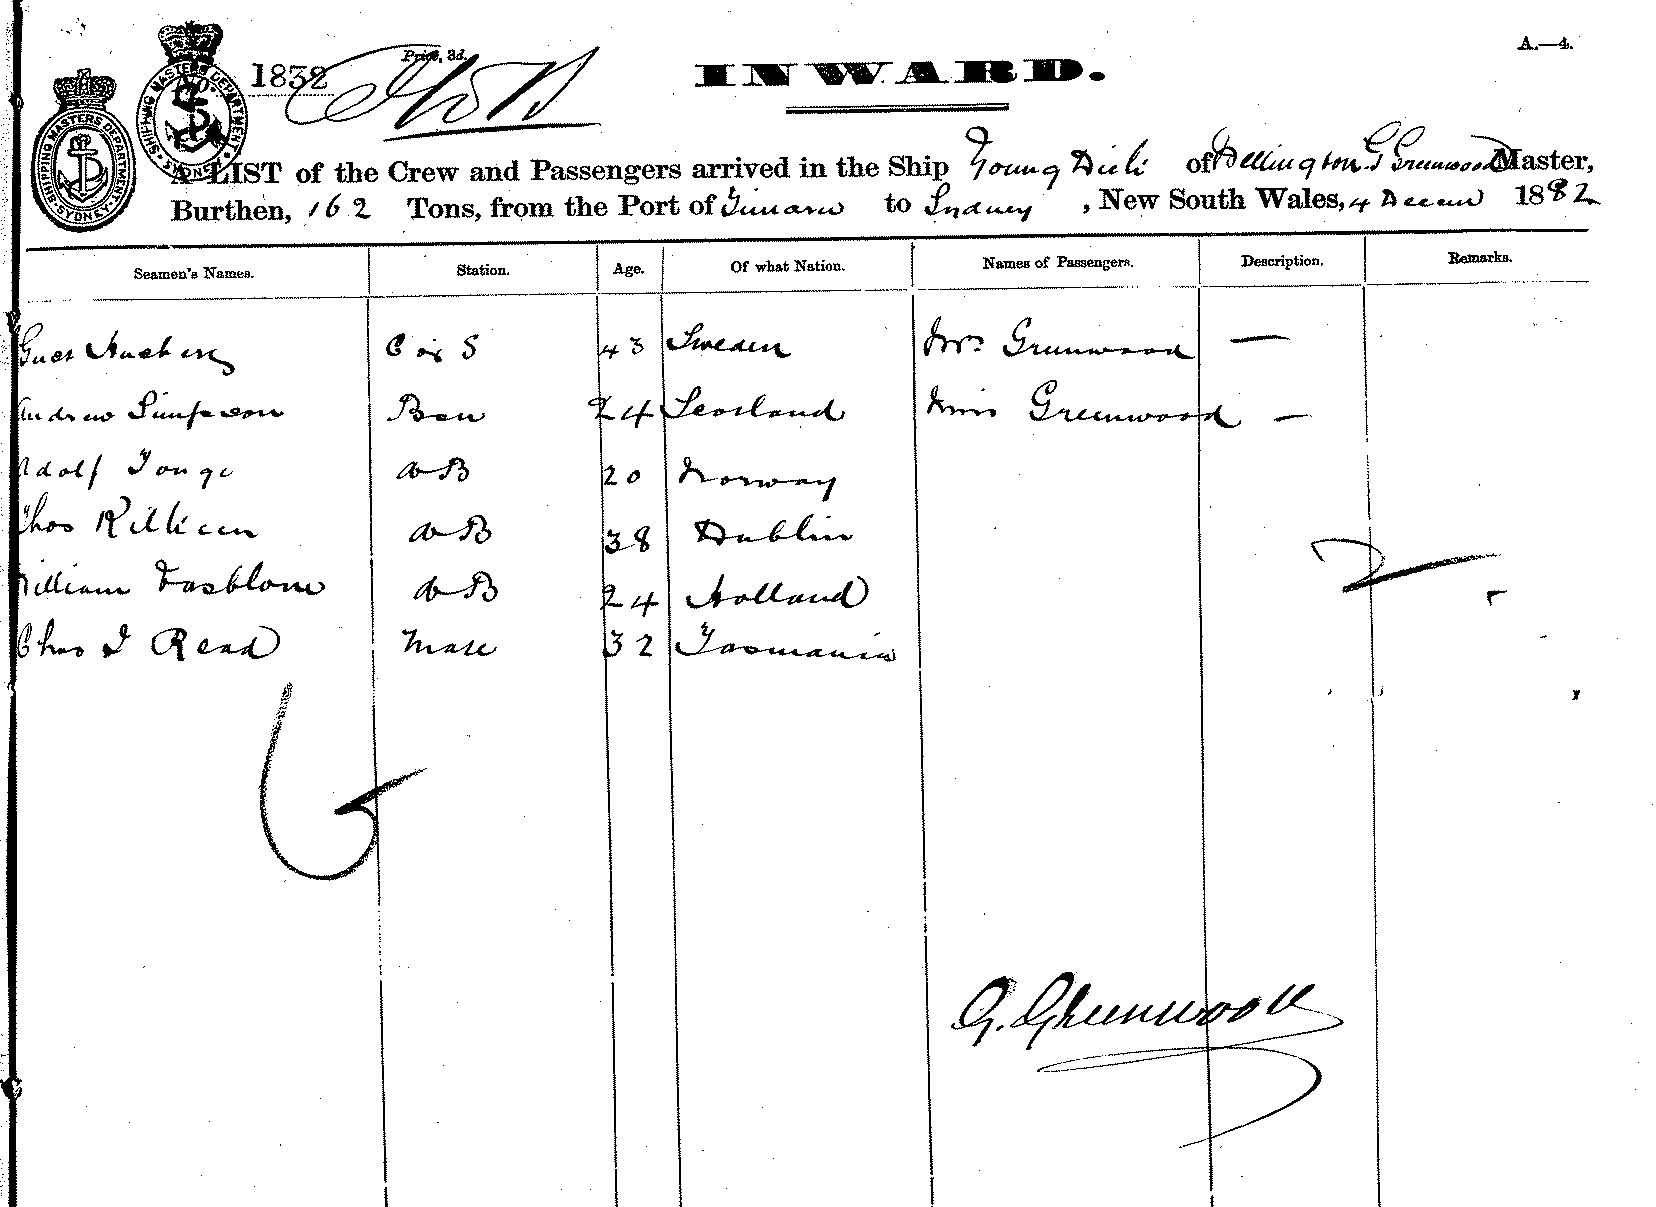 A.—4.
1832
Price, 3d.
INWARD.
SHIPPING MASTERS DEPARTMENT SYDNEY
SHIPPING MASTERS DEPARTMENT
A LIST of the Crew and Passengers arrived in the Ship Young Dick of Wellington G Greenwood Master,
Burthen, 162 Tons, from the Port of Timaru to Sydney, New South Wales, 4 Decem 1882
Seamen's Names. Station. Age. Of what Nation. Names of Passengers. Description. Remarks.
43 Sweden Mrs Greenwood —
Andrew Simpson 24 Scotland Miss Greenwood —
Adolf 20 Norway
Thos AB 38 Dublin
William AB 24 Holland
Chas J Read Mate 32 Tasmania
2
6
G. Greenwood